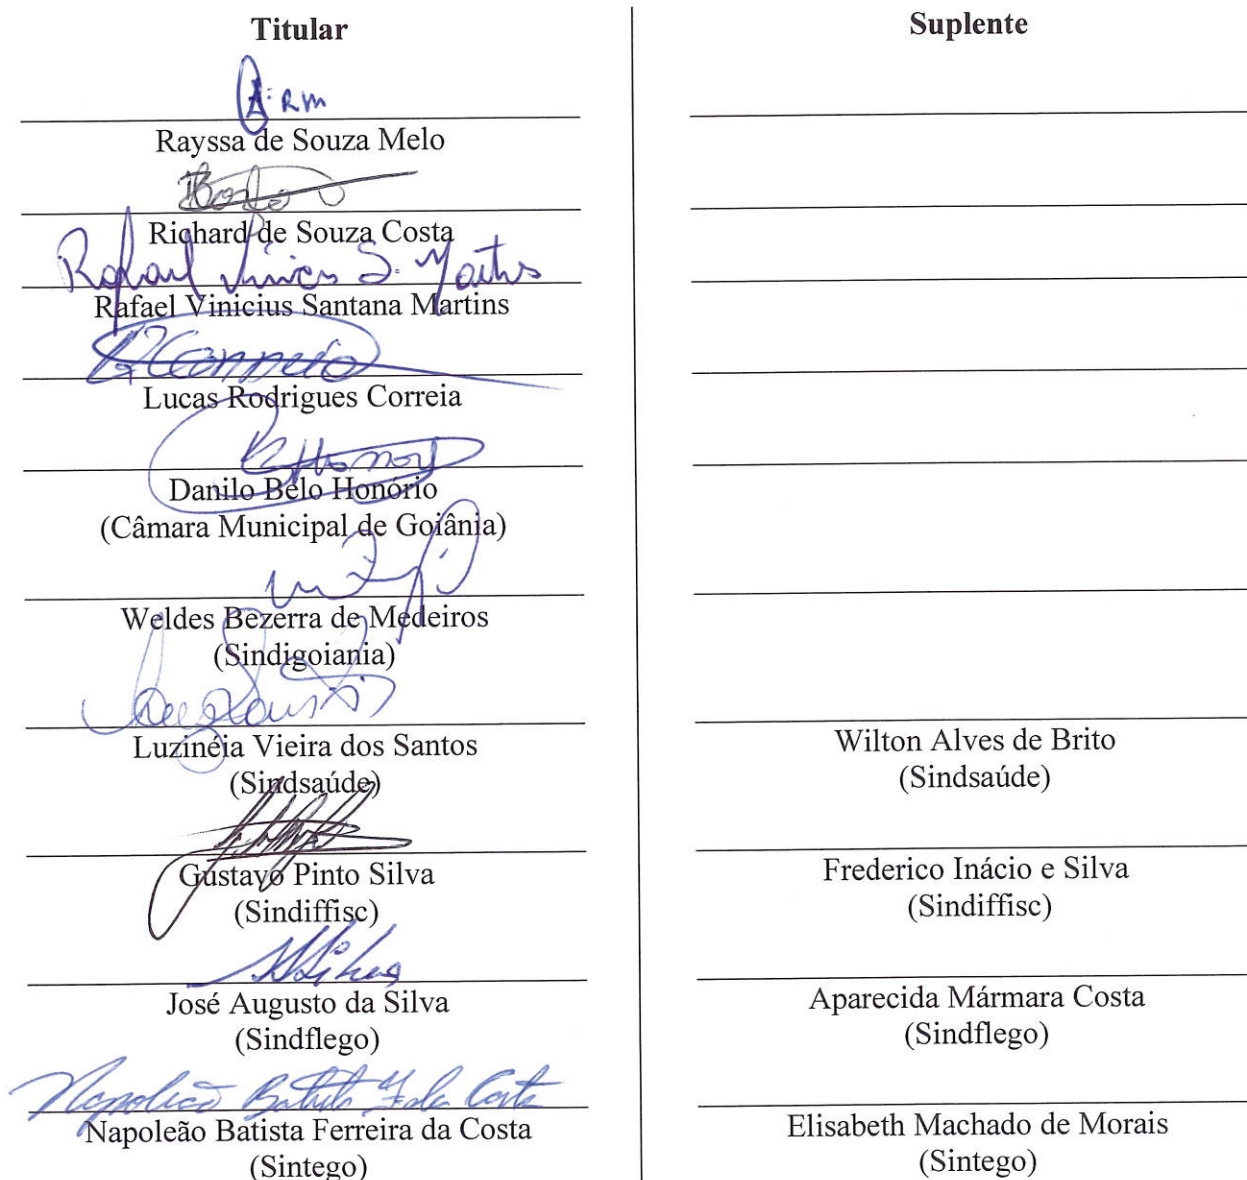 Titular
Rayssa de Souza Melo
Richard de Souza Costa
Rafael Vinicius Santana Martins
Lucas Rodrigues Correia
Danilo Belo Honório
(Câmara Municipal de Goiânia)
Weldes Bezerra de Medeiros
(Sindigoiania)
Luzinéia Vieira dos Santos
(Sindsaúde)
Gustavo Pinto Silva
(Sindiffisc)
José Augusto da Silva
(Sindflego)
Napoleão Batista Ferreira da Costa
(Sintego)
Suplente
Wilton Alves de Brito
(Sindsaúde)
Frederico Inácio e Silva
(Sindiffisc)
Aparecida Mármara Costa
(Sindflego)
Elisabeth Machado de Morais
(Sintego)